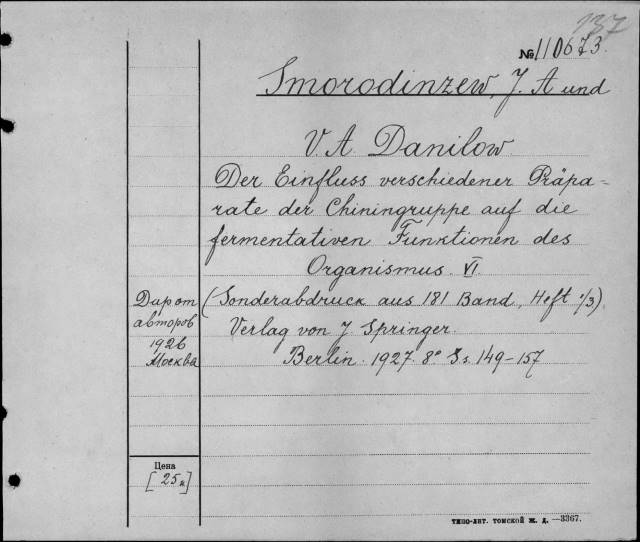 137
№ 110673.
Smorodinzew, J. A und
V. A. Danilow.
Der Einfluss verschiedener Präpa=
rate der Chiningruppe auf die
fermentativen Funktionen des
Organismus. VI.
(Sonderabdruck aus 181 Band, Heft 1/3)
Verlag von J. Springer.
Berlin. 1927. 8° Ss. 149-157
Дар от
авторов
1926
Москва
Цена
[25к]
ТИПО-ЛИТ. ТОМСКОЙ Ж. Д. —3367.